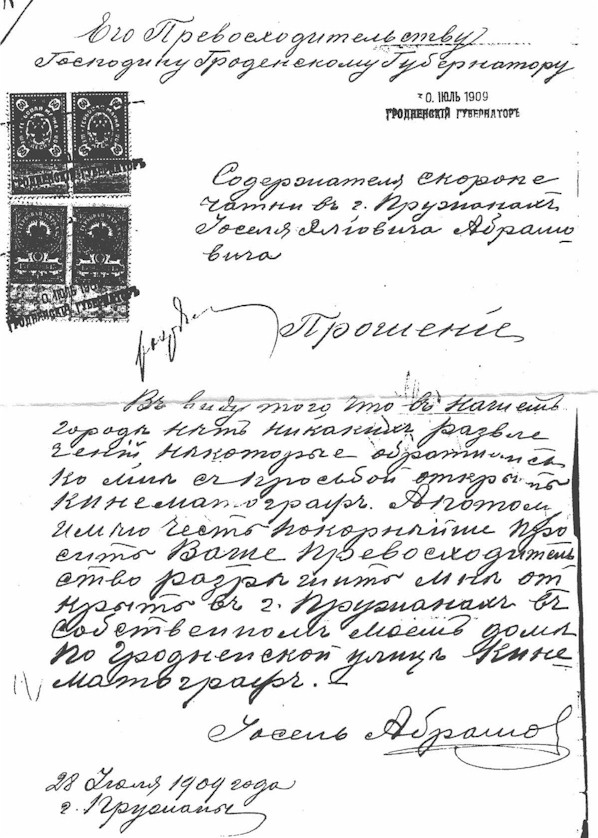 Его Превосходительству
Господину Гроденскому Губернатору
30. ІЮЛЬ 1909
ГРОДНЕНСКІЙ ГУБЕРНАТОРЪ
Содержателя скоропе
чатни въ г. Пружанахъ
Іоселя Абрамо
вича
ГРОДНЕНСКІЙ ГУБЕРНАТОРЪ
0. ІЮЛЬ 190
ГРОДНЕНСКІЙ ГУБЕРНАТОРЪ
Прошеніе
Въ виду того, что въ нашемъ
городѣ нѣтъ никакихъ развле
ченій нѣкоторые обратились
ко мнѣ съ просьбой открыть
Кинематографъ. А потому
имѣю честь покорнѣйше про
сить Ваше Превосходитель
ство разрѣшить мнѣ от
крыть въ г. Пружанахъ въ
собственномъ моемъ домѣ
по Гродненской улицѣ Кине
матографъ.
Іосель Абрамо
28 Іюля 1909 года
г. Пружаны